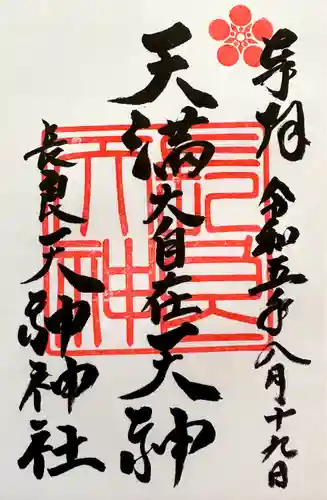 奉拝
令和五年八月十九日
天満大自在天神
長良天神神社
長良天神